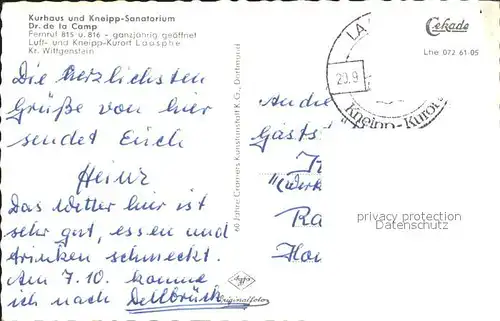 Kurhaus und Kneipp-Sanatorium
Dr. de la Camp
Fernruf 815 u. 816 - ganzjährig geöffnet
Luft- und Kneipp-Kurort Laasphe
Kr. Wittgenstein
Die herzlichsten
Grüße von hier
sendet Euch
Heinz
Das Wetter hier ist
sehr gut, essen und
trinken schmeckt.
Am 7.10. komme
ich nach Dellbrück
60 Jahre Cramers Kunstanstalt K.G., Dortmund
Agfa
Originalfoto
Cekade
Lne 072 61-05
LA
20.9
Kneipp-Kurort
An die
Gasts
"(Werk
Ra
privacy protection
Datenschutz